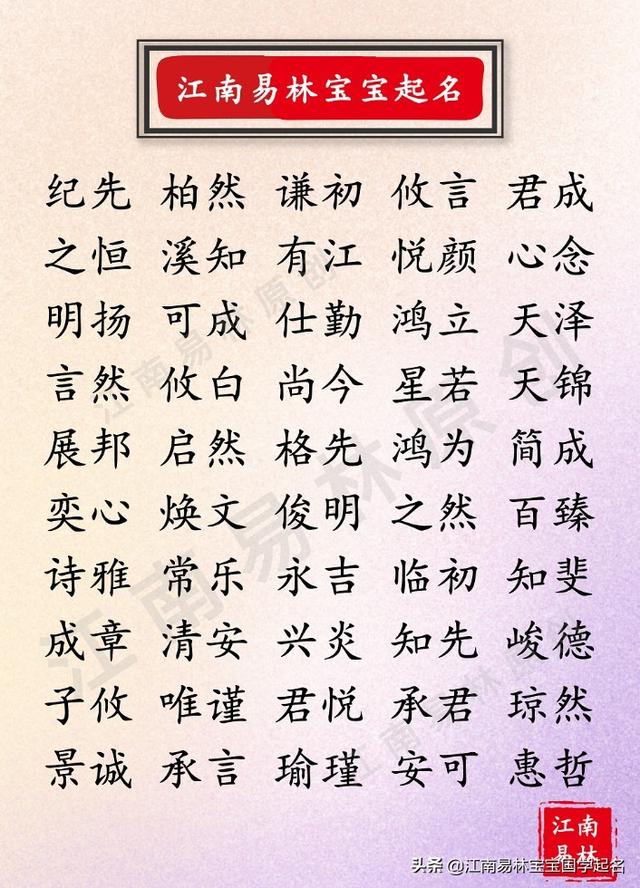 江南易林宝宝起名
纪先 柏然 谦初 攸言 君成
之恒 溪知 有江 悦颜 心念
明扬 可成 仕勤 鸿立 天泽
言然 攸白 尚今 星若 天锦
展邦 启然 格先 鸿为 简成
奕心 焕文 俊明 之然 百臻
诗雅 常乐 永吉 临初 知斐
成章 清安 兴炎 知先 峻德
子攸 唯谨 君悦 承君 琼然
景诚 承言 瑜瑾 安可 惠哲
江南易林原创
江南易林原创
江南易林原创
江南
易林
头条 @江南易林宝宝国学起名